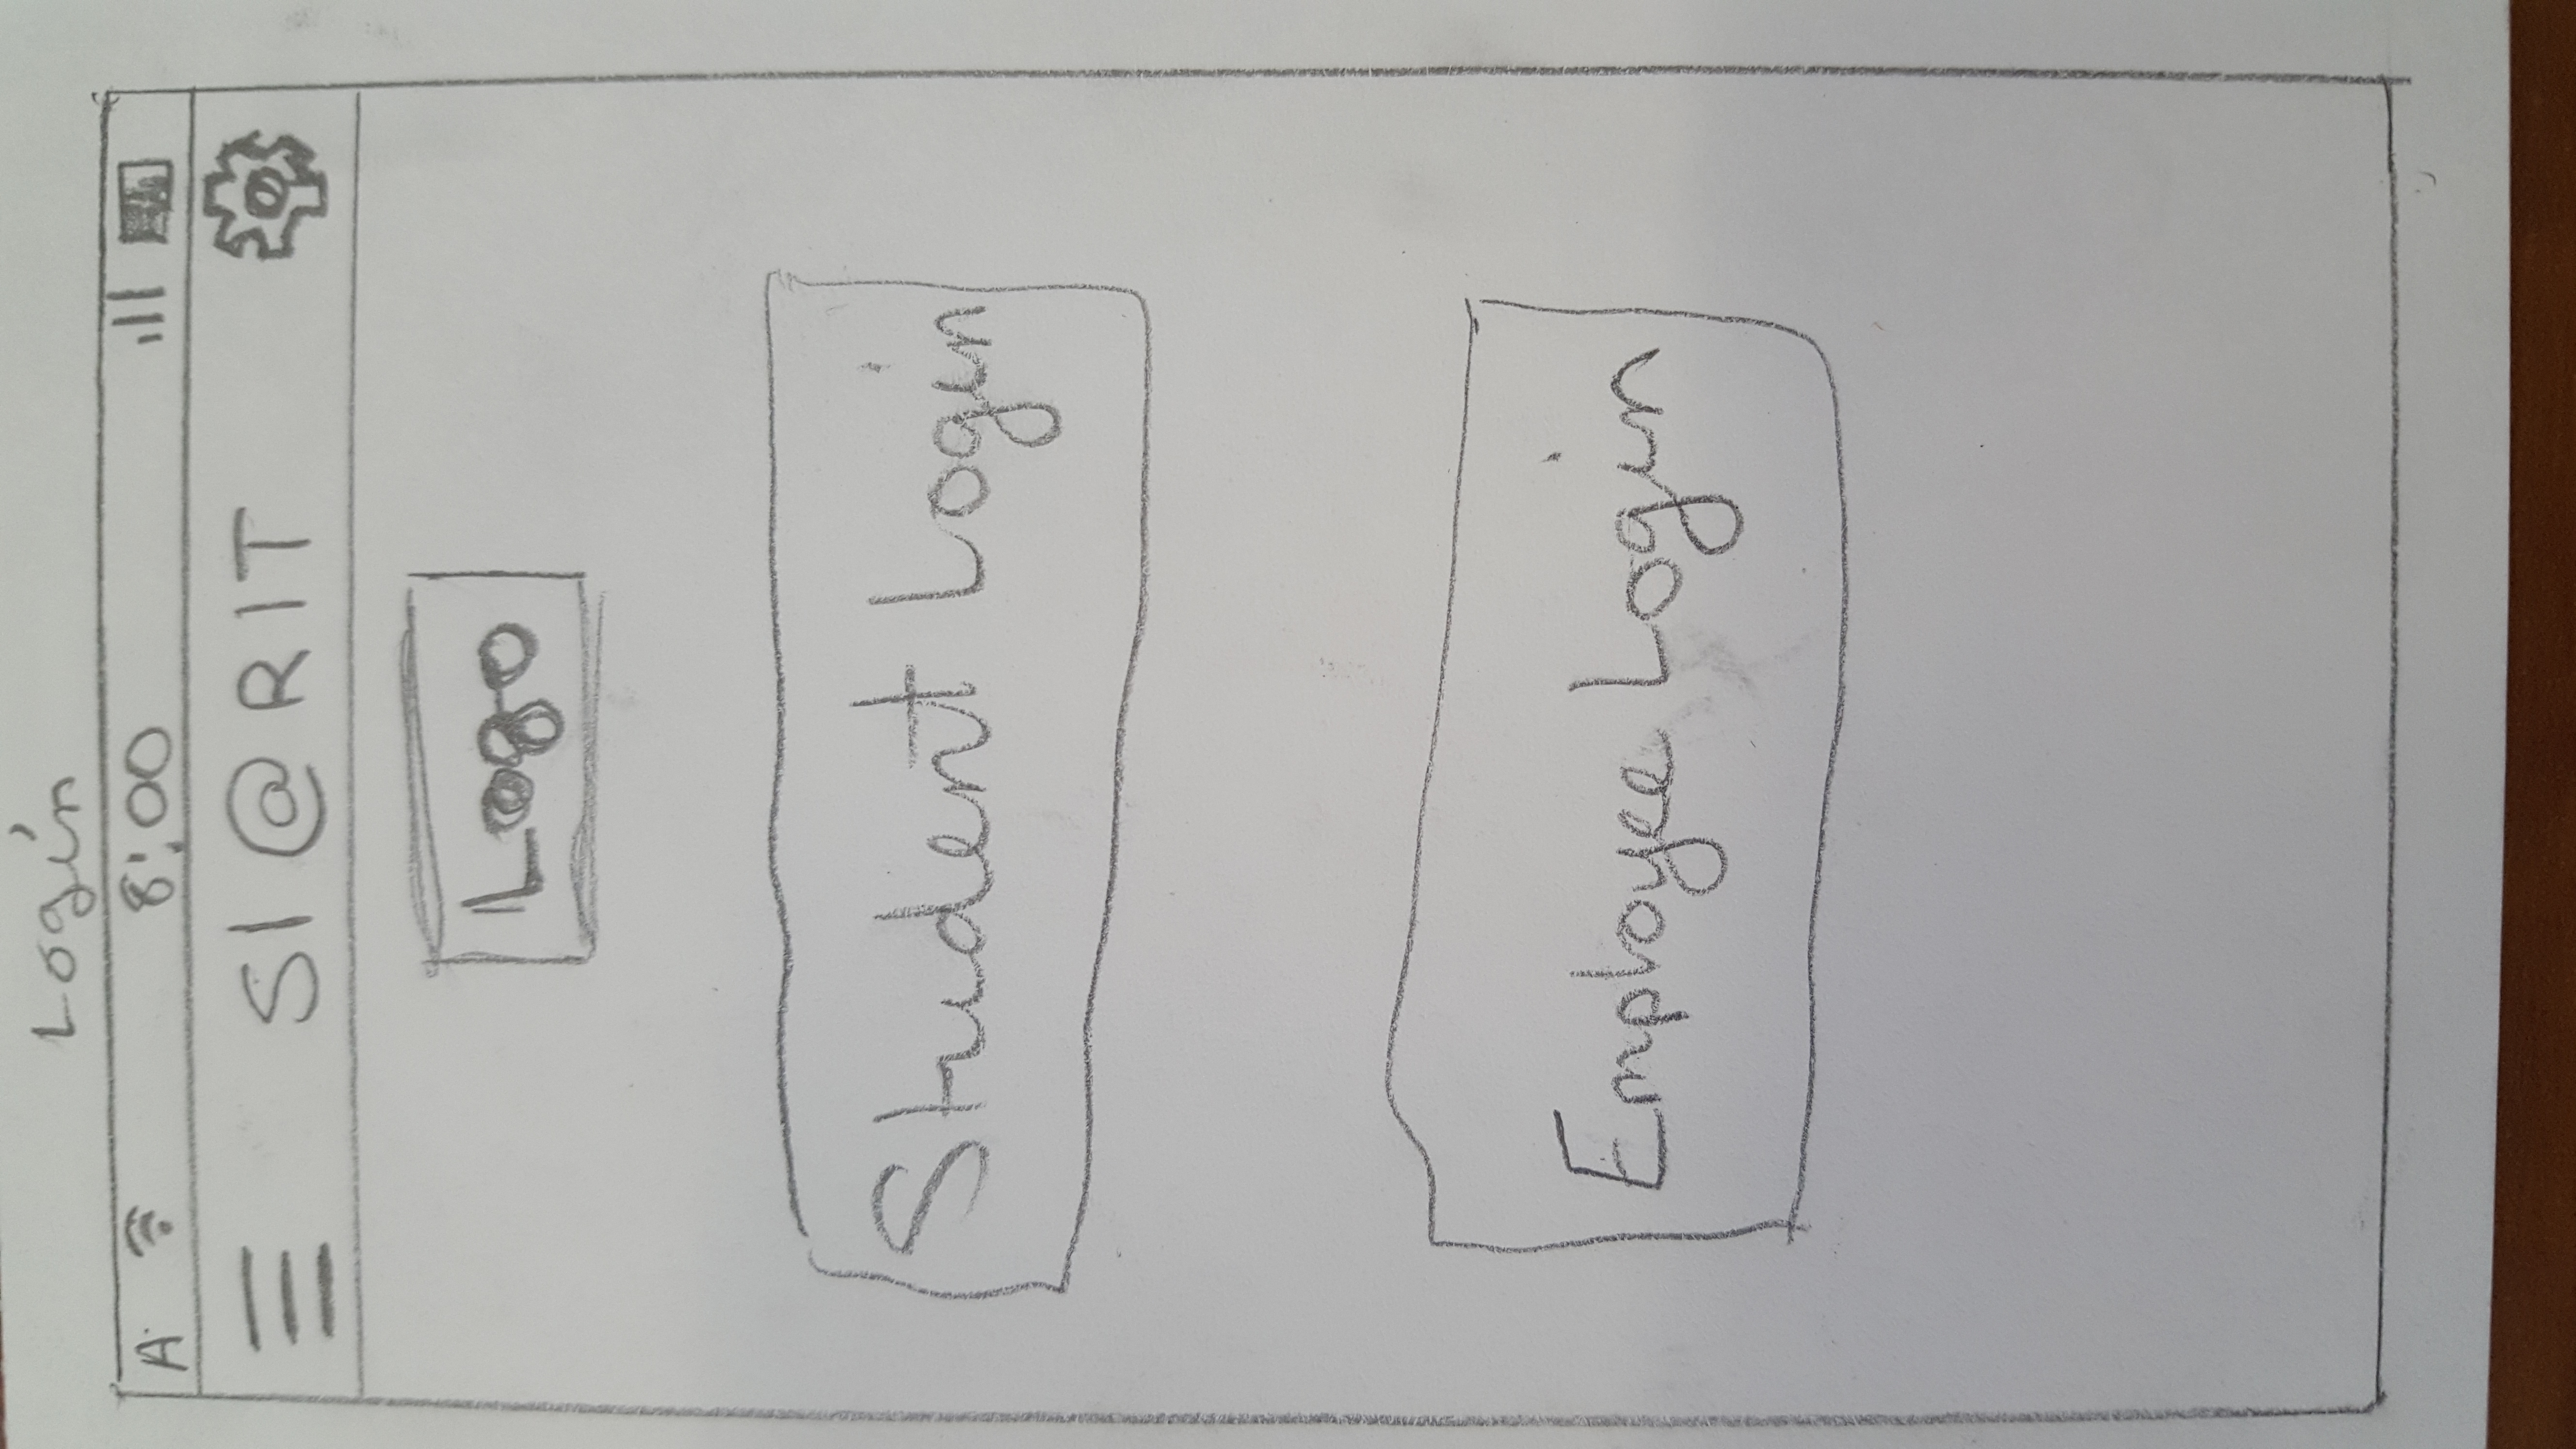 Login
A 8:00
SI @ RIT
Logo
Student Login
Employee Login